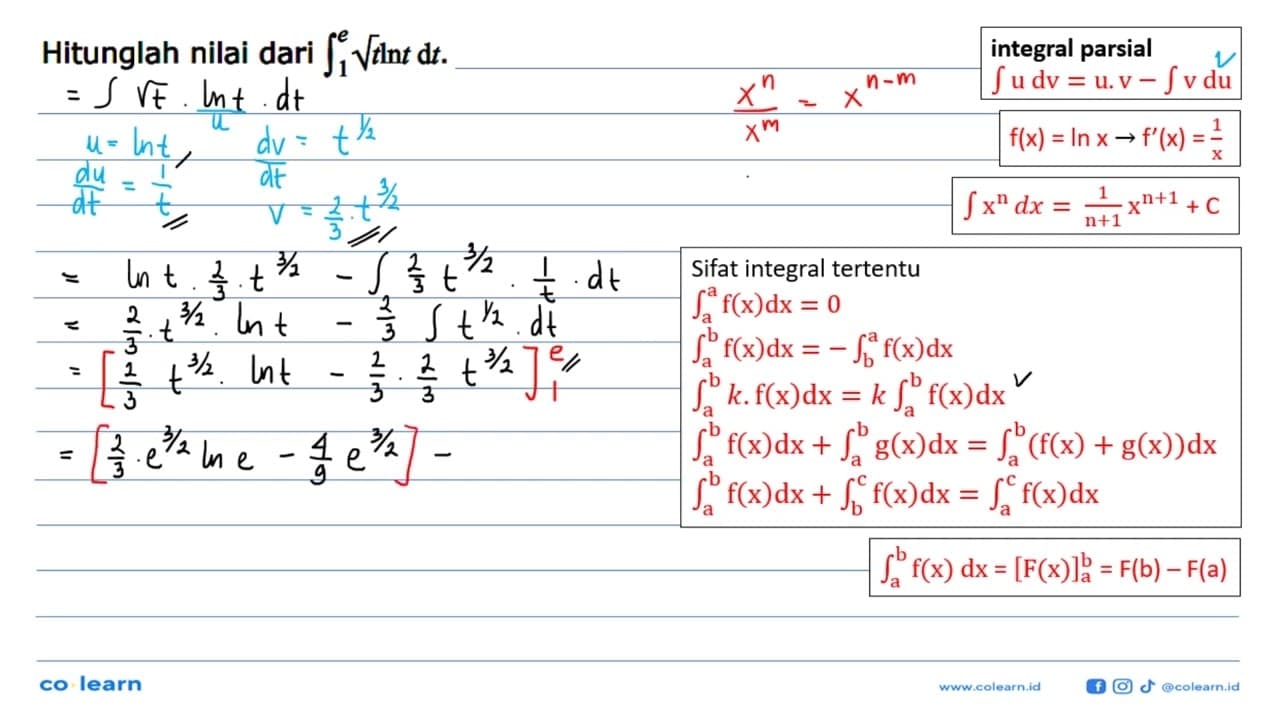 Hitunglah nilai dari ∫₁ᵉ √t ln t dt.
= ∫ √t . ln t . dt
u
u = ln t
du/dt = 1/t
dv/dt = t^(1/2)
v = 2/3 . t^(3/2)
= ln t . 2/3 . t^(3/2) − ∫ 2/3 t^(3/2) . 1/t . dt
= 2/3 . t^(3/2) . ln t − 2/3 ∫ t^(1/2) . dt
= [2/3 t^(3/2) . ln t − 2/3 . 2/3 t^(3/2)]₁ᵉ
= [2/3 . e^(3/2) ln e − 4/9 e^(3/2)] −
x^n/x^m = x^(n−m)
integral parsial
∫ u dv = u. v − ∫ v du
f(x) = ln x → f'(x) = 1/x
∫ xⁿ dx = 1/(n+1) x^(n+1) + C
Sifat integral tertentu
∫ₐᵃ f(x)dx = 0
∫ₐᵇ f(x)dx = − ∫_b^a f(x)dx
∫ₐᵇ k. f(x)dx = k ∫ₐᵇ f(x)dx ✓
∫ₐᵇ f(x)dx + ∫ₐᵇ g(x)dx = ∫ₐᵇ (f(x) + g(x))dx
∫ₐᵇ f(x)dx + ∫_b^c f(x)dx = ∫_a^c f(x)dx
∫ₐᵇ f(x) dx = [F(x)]ₐᵇ = F(b) – F(a)
co learn
www.colearn.id
@colearn.id